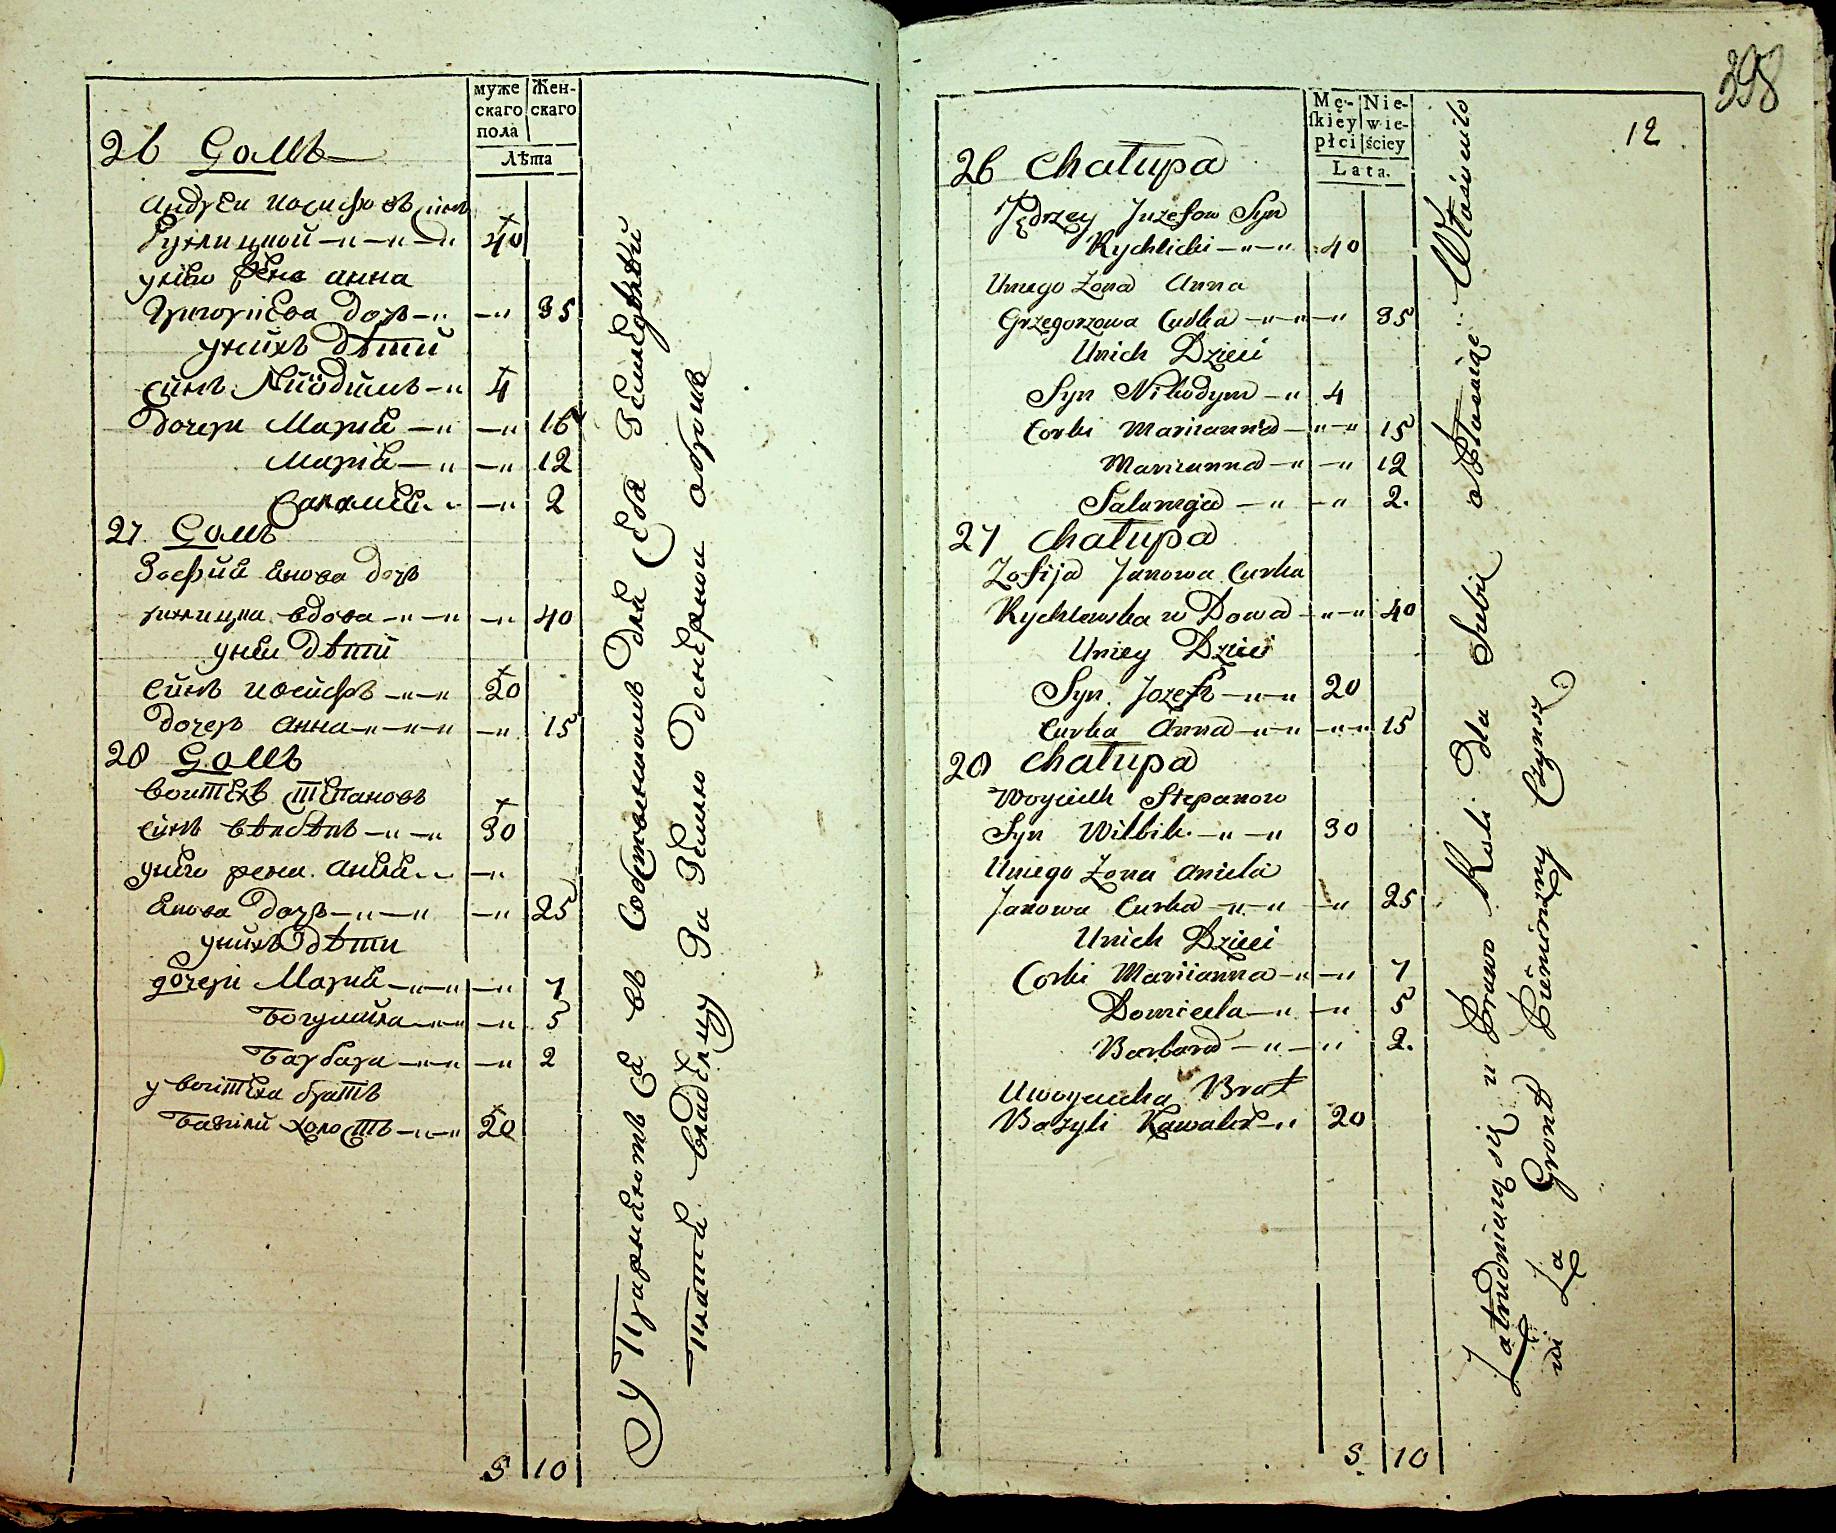 муже
скаго
пола
Жен-
скаго
Лѣта
26 Домъ
Андрей Иосифовъ сынъ
40
унѣго жена Анна
Григорьева дочь —„ —„ 35
унихъ дѣти
сынъ Никодимъ —„ 4
дочери Марья —„ —„ 15
Марья —„ —„ 12
Саломея —„ 2
27 Домъ
Зофия Янова дочь
вдова —„—„ —„ 40
уней дѣти
сынъ Иосифъ —„—„ 20
дочерь Анна —„—„—„ —„ 15
28 Домъ
Войтехъ Степановъ
сынъ —„—„ 30
унѣго жена Анеля —„
Янова дочь —„—„ —„ 25
унихъ дѣти
дочери Марья —„—„ —„ 7
5
Барбара —„—„ —„ 2
у Войтеха братъ
Базыли холостъ —„—„ 20
5 10
Упражняютъся въ собственномъ для себя земледѣлии
платя владельцу за землю денежной оброкъ
398
12
Mę-
skiey
płci
Nie-
wie-
ściey
Lata.
26 Chałupa
Jędrzey Juzefow Syn
Rychlicki —„—„ 40
Uniego Zona Anna
Grzegorzowa Curka —„—„—„ 35
Unich Dzieci
Syn Nikodym —„ 4
Corki Mariianna —„—„ 15
Marrianna —„ —„ 12
Salomeja —„ —„ 2.
27 Chałupa
Zofija Janowa Curka
Rychlewska w Dowa —„—„ 40
Uniey Dzieci
Syn Jozef —„—„ 20
Curka Anna —„—„ —„—„ 15
28 Chałupa
Woyciech Stepanow
Syn Wilbik —„—„ 30
Uniego Zona Aniela
Janowa Curka —„—„ —„ 25
Unich Dzieci
Corki Mariianna —„ —„ 7
Domicela —„ —„ 5
Barbara —„—„ 2.
Uwoyciecha Brat
Bazyli Kawaler —„ 20
5 10
Zatrudniaią się u Prawo Roli dla Siebie opłaniąc Własciwilo
wi Za Gront Pieniężny Czynsz